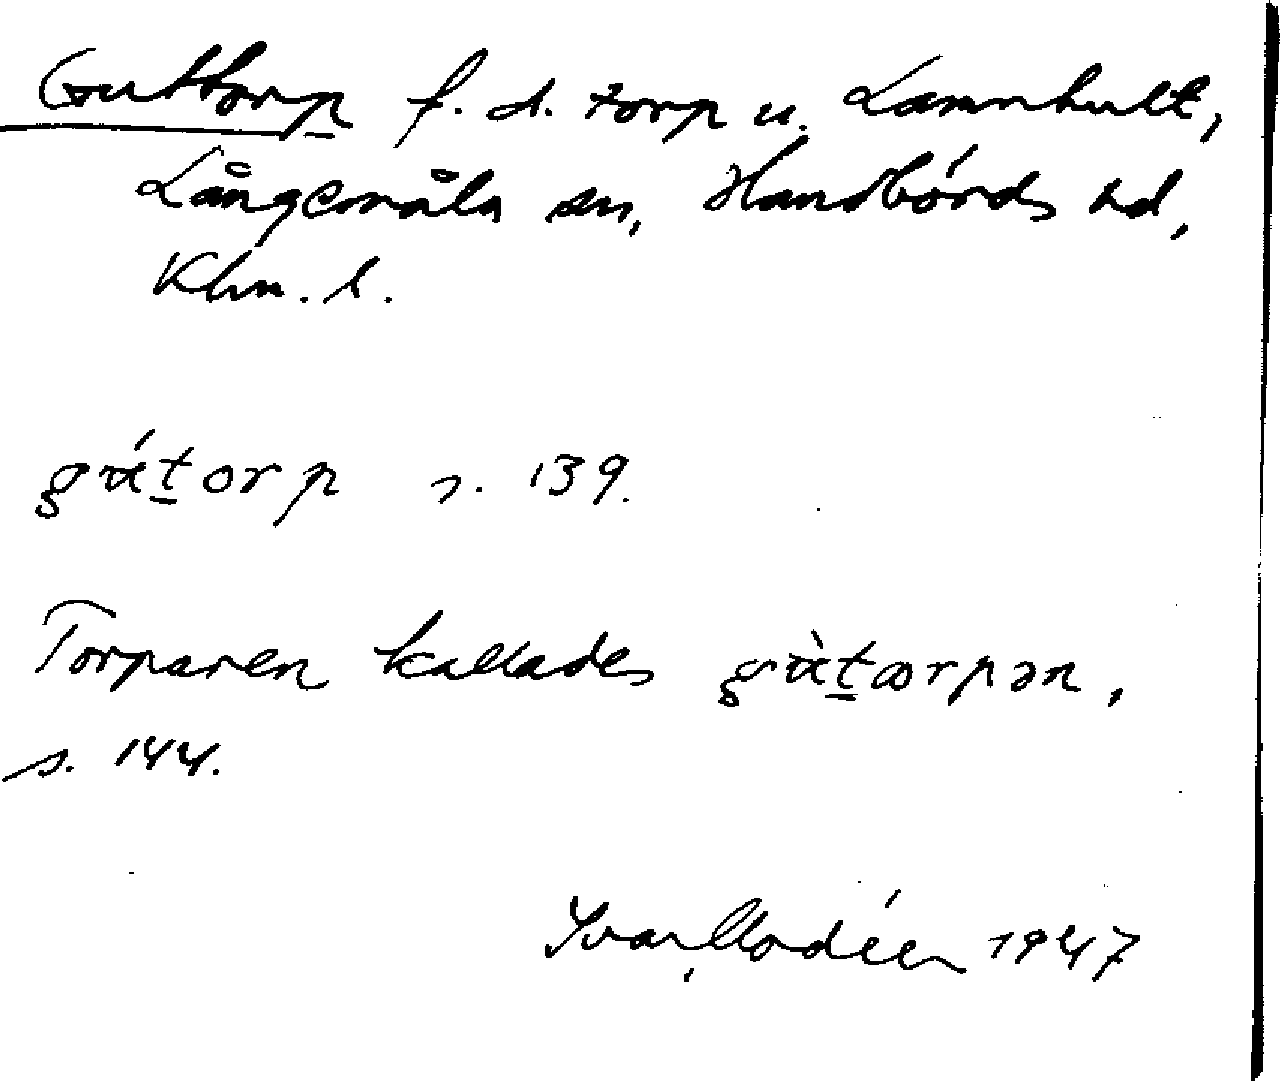 Guttorp f. d. torp u. Lammhult,
Långemåla sn, Handbörds hd,
Klm. l.
gútorp s. 139.
Torparen kallades gùtorpən,
s. 144.
Ivar Modéer 1947